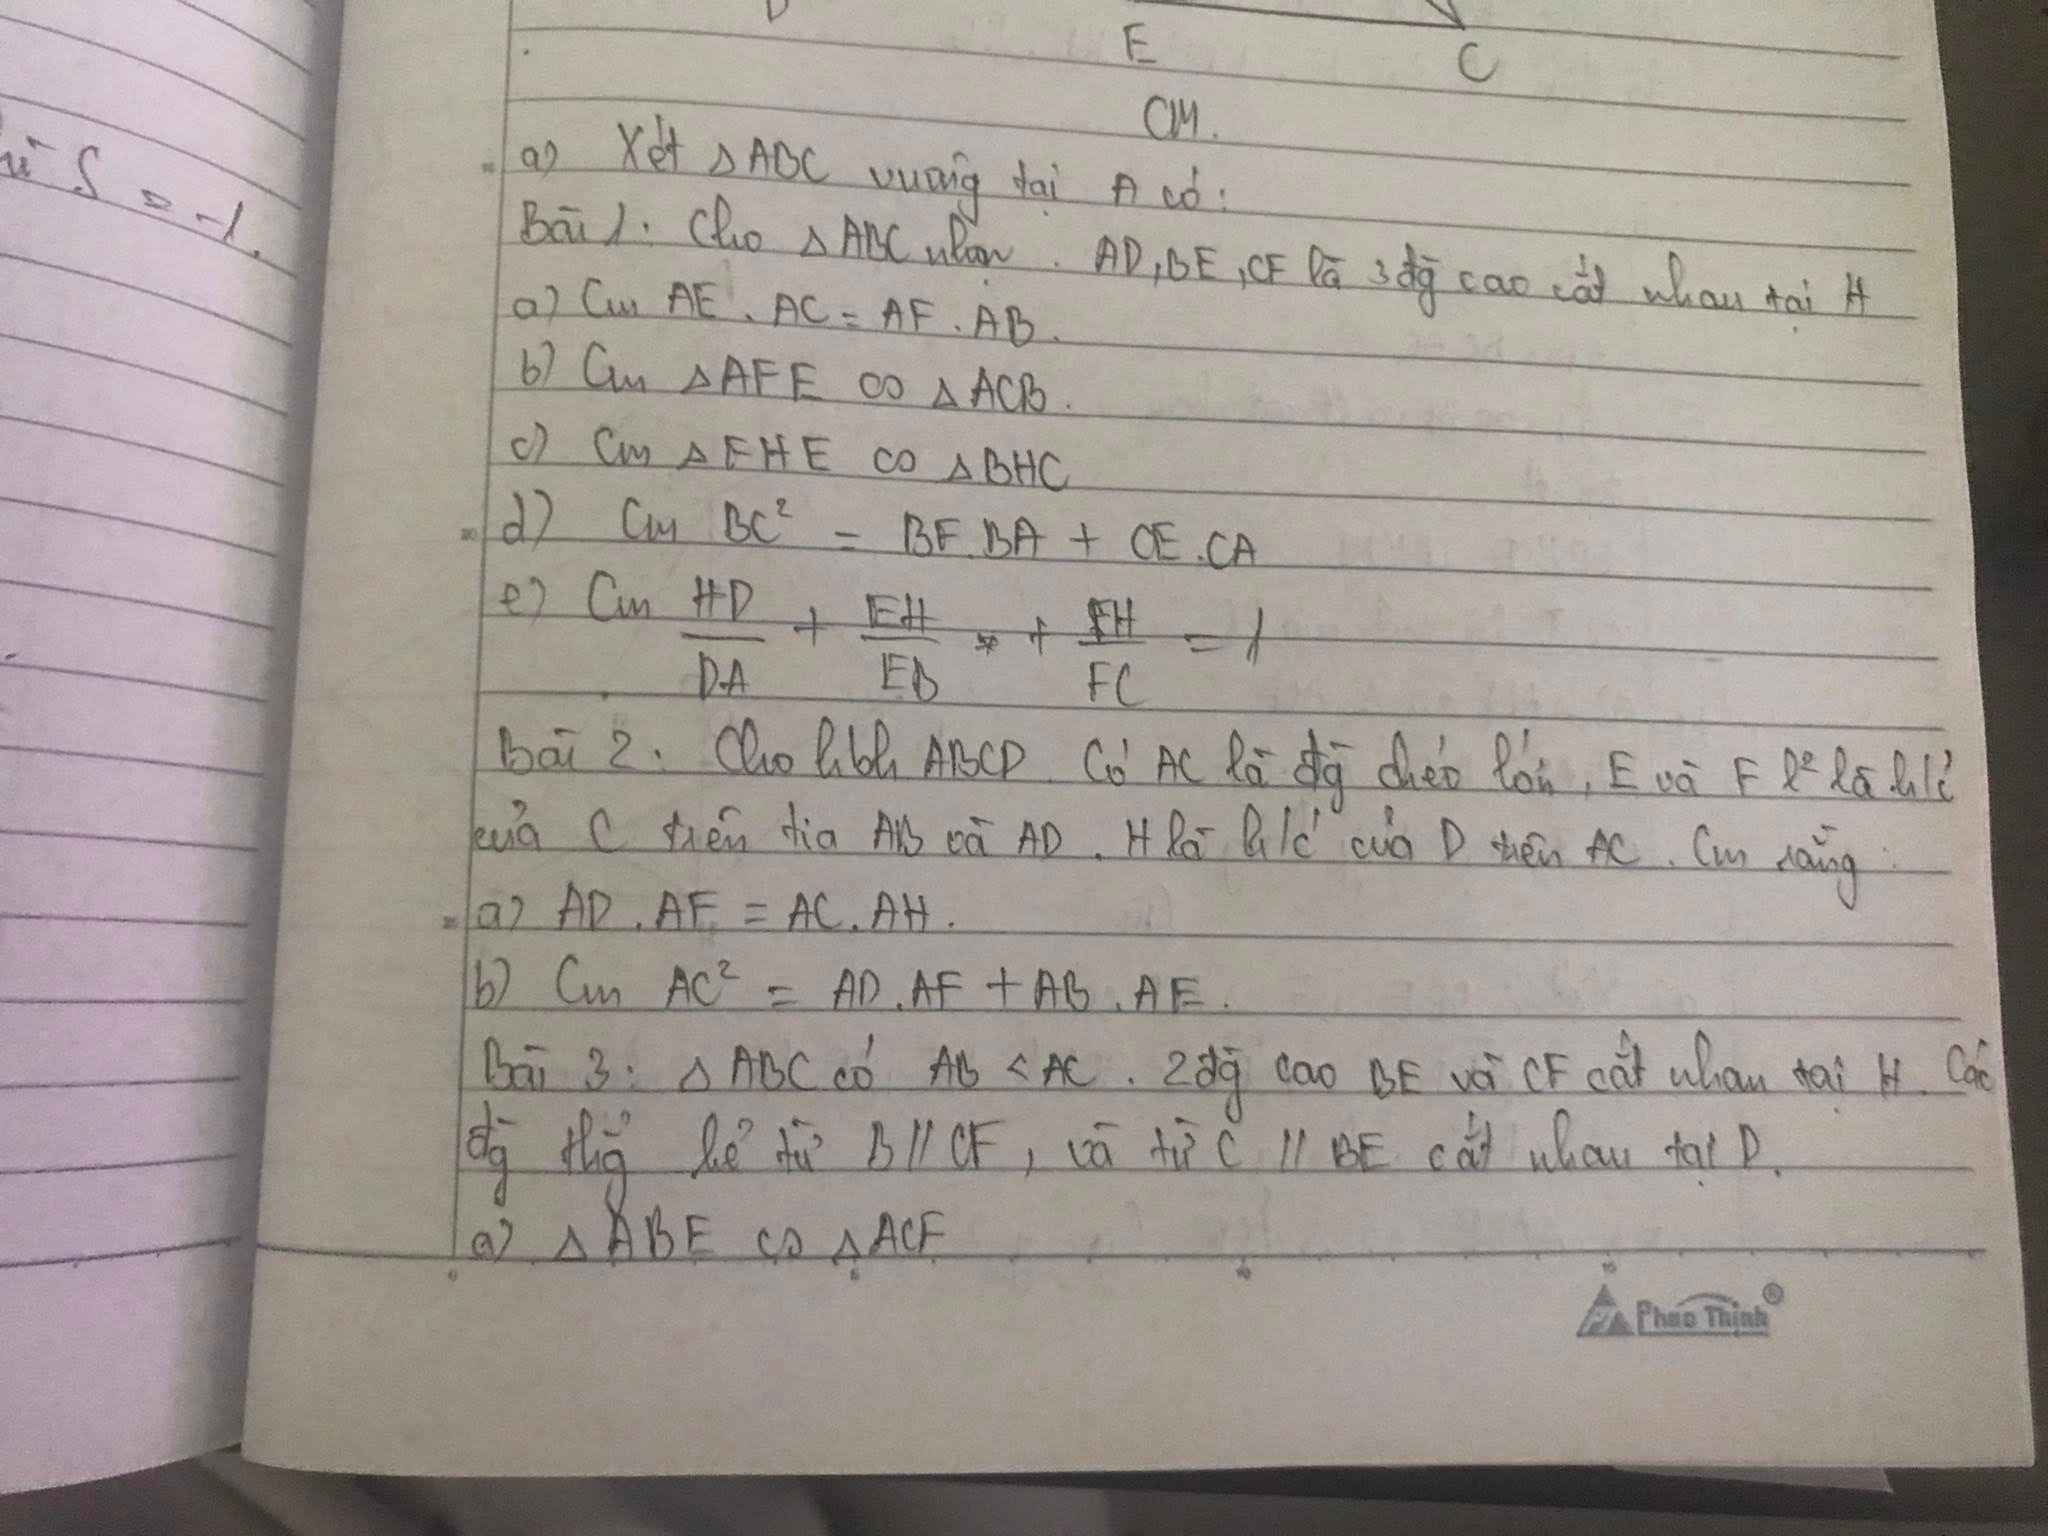 E
C
CM.
ü S = -1.
a) Xét △ABC vuông tại A có:
Bài 1: Cho △ABC nhọn. AD, BE, CF là 3 đg̀ cao cắt nhau tại H
a) Cm AE. AC = AF. AB.
b) Cm △AFE ∽ △ACB.
c) Cm △FHE ∽ △BHC
d) Cm BC² = BF.BA + CE.CA
e) Cm HD/DA + EH/EB + FH/FC = 1
Bài 2: Cho hbh ABCD. Có AC là đg̀ chéo lớn, E và F l² là h/c
của C trên tia AB và AD. H là h/c của D trên AC. Cm rằng
a) AD. AF = AC. AH.
b) Cm AC² = AD.AF + AB.AE.
Bài 3: △ABC có AB < AC. 2 đg̀ cao BE và CF cắt nhau tại H. Các
đg̀ thg̉ kẻ từ B // CF, và từ C // BE cắt nhau tại D.
a) △ABE ∽ △ACF
Phao Thinh®